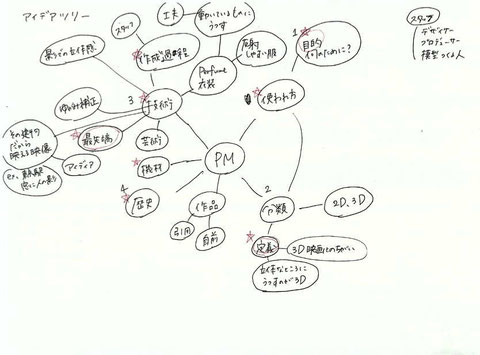 アイデアツリー
工夫
動いているものに
うつす
スタッフ
デザイナー
プロデューサー
模型つくる人
スタッフ
作成過程
Perfume
衣装
1
目的
何のために?
ゆがみ補正
3
技術
使われ方
その建物
だから
映える映像
最先端
芸術
アイディア
PM
機材
4
歴史
作品
引用
自前
2
分類
2D、3D
定義
3D映画とのちがい
立体なところに
うつすのが3D